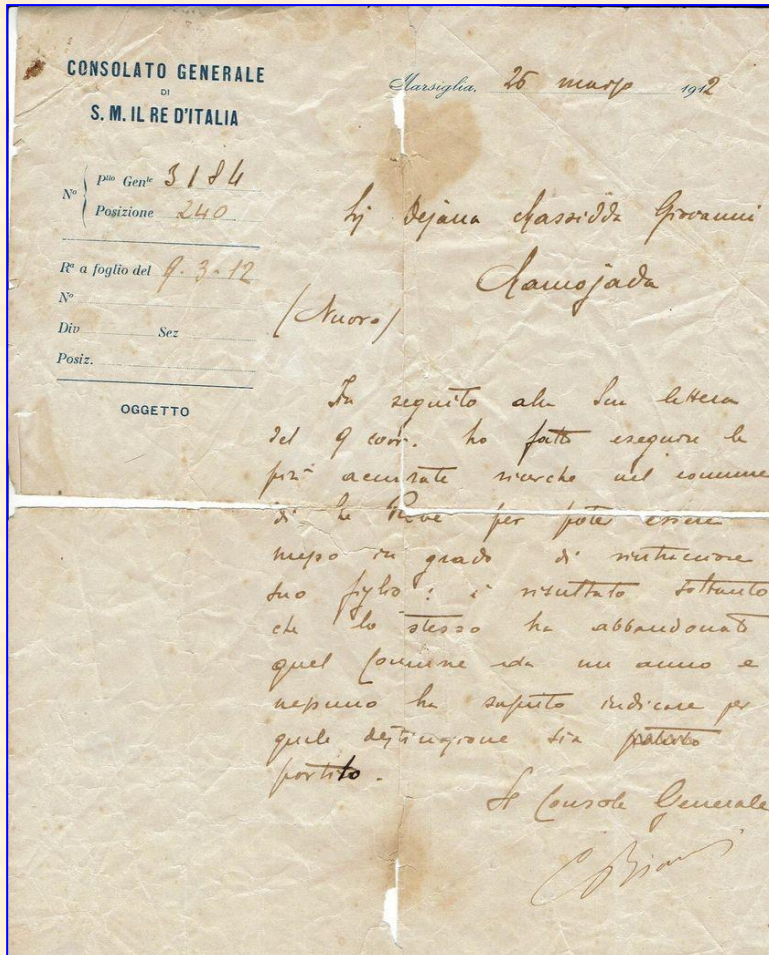 CONSOLATO GENERALE
DI
S. M. IL RE D'ITALIA
Marsiglia. 26 marzo 1912
N° Ptto Genle 3184
Posizione 240
Ra a foglio del 9.3.12
N°
Div Sez
Posiz.
OGGETTO
Sig Dejana Massidda Giovanni
Mamojada
(Nuoro)
In seguito alla Sua lettera
del 9 corr. ho fatto eseguire le
più accurate ricerche nel comune
di La per poter essere
messo in grado di rintracciare
suo figlio: è risultato soltanto
che lo stesso ha abbandonato
quel Comune da un anno e
nessuno ha saputo indicare per
quale destinazione sia
partito.
Il Console Generale